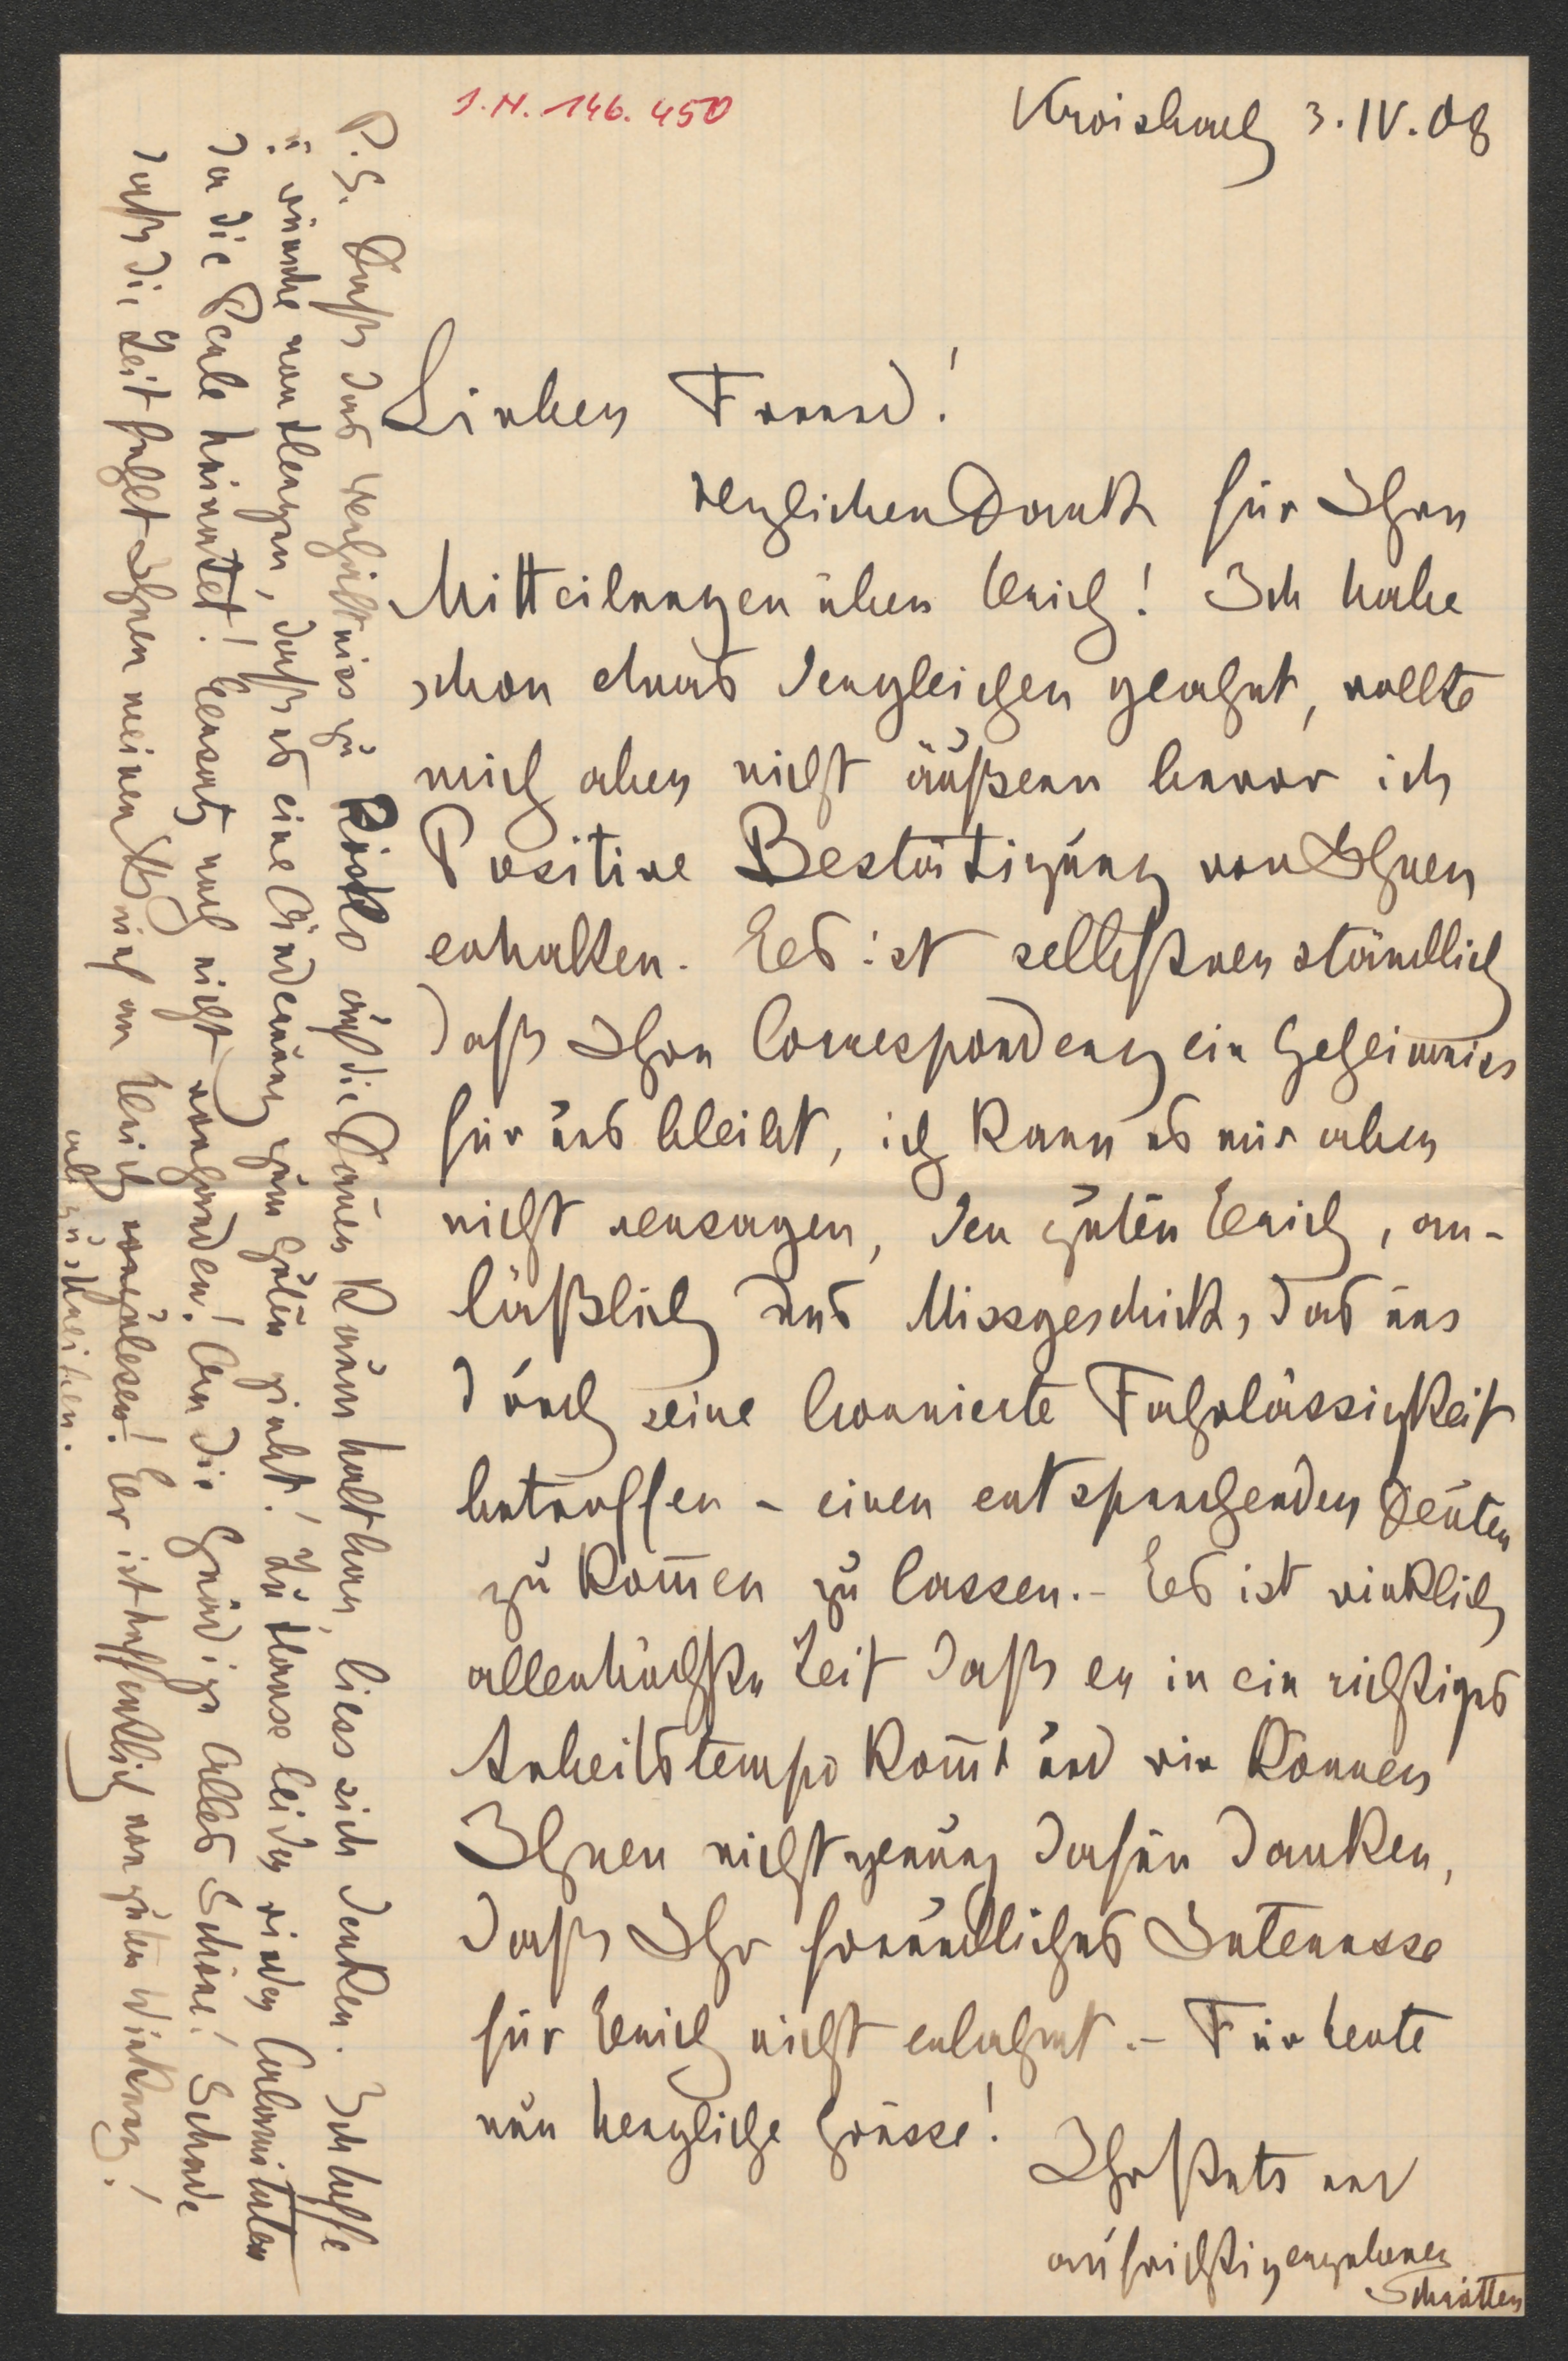 J.N. 146.450
Kroisbach 3.IV.08
Lieber Freund!
Herzlichen Dank für Ihre
Mitteilungen über Erich! Ich habe
schon etwas dergleichen geahnt, wollte
mich aber nicht äußern bevor ich
Positive Bestätigung von Ihnen
erhalten. Es ist selbstverständlich
daß Ihre Correspondenz ein Geheimnis
für uns bleibt, ich kann es mir aber
nicht versagen, den guten Erich, an-
läßlich des Missgeschicks, das uns
durch seine bornierte Fahrlässigkeit
betroffen - einen entsprechenden Deuter
zu kom̅en zu lassen. - Es ist wirklich
allerhöchste Zeit daß er in ein richtiges
Arbeitstempo kom̅t und wir können
Ihnen nicht genug dafür danken,
daß Ihr freundliches Interesse
für Erich nicht erlahmt. - Für heute
nur herzliche Grüsse!
Ihr stets
aufrichtig ergebener
Schrötter
P.S. Daß das Verhältniss zu auf die Dauer kaum haltbar, liess sich denken. Ich hoffe
u. wünsche von Herzen, daß es eine Änderung zum Guten giebt! Zu Hause leider wieder Calamitäten
da die Perle heiratet! Ersatz noch nicht vorhanden! An die Gnädige Alles Schöne! Schade
daß die Zeit fehlt Ihnen meinen Brief an Erich
abzuschreiben.
Er ist hoffentlich von guter Wirkung!